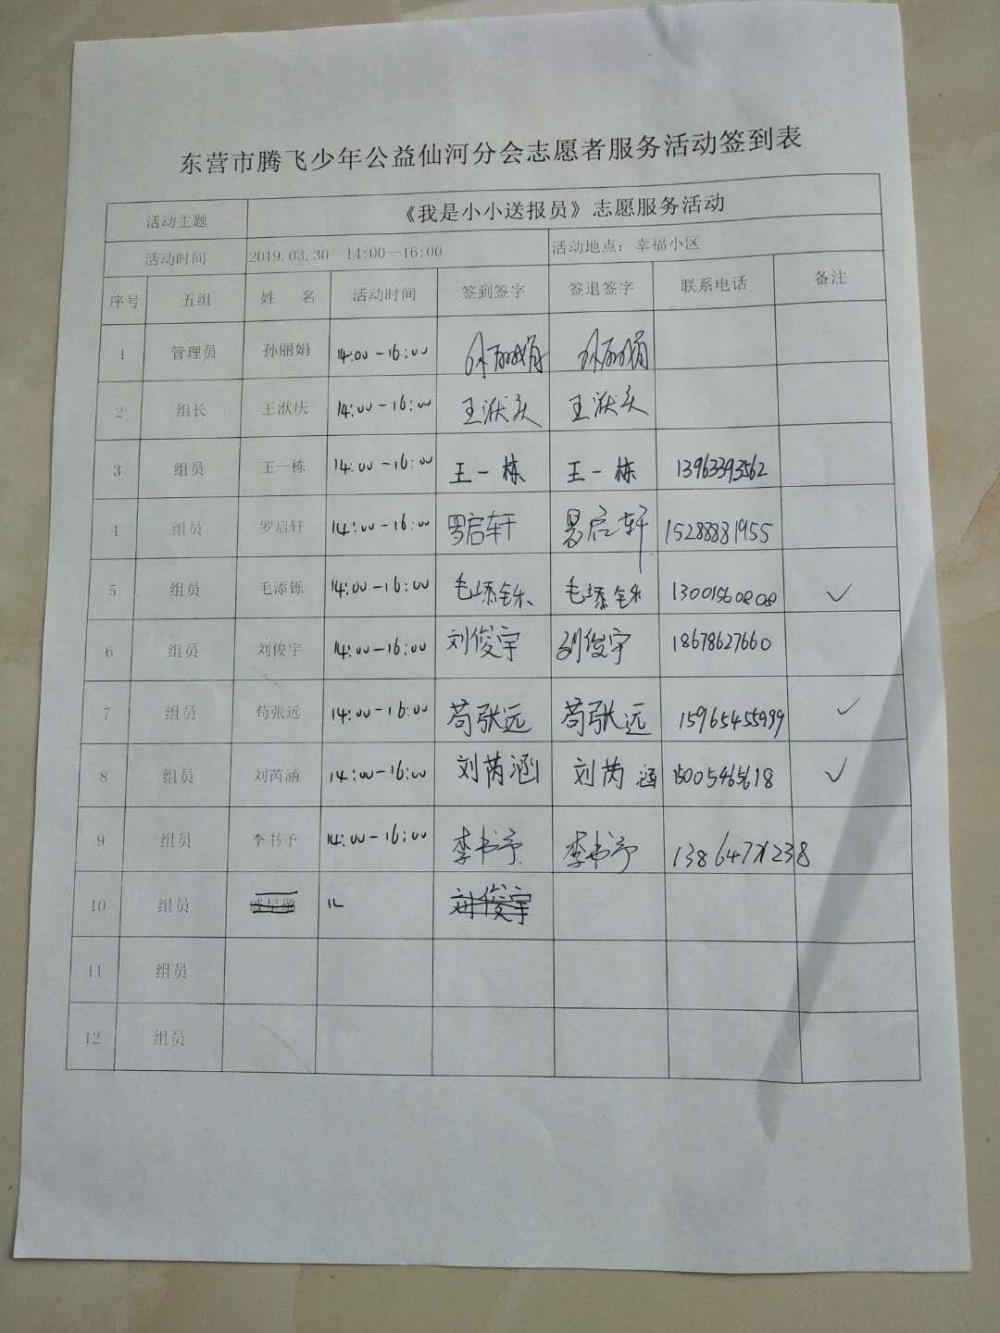 东营市腾飞少年公益仙河分会志愿者服务活动签到表
活动主题 《我是小小送报员》志愿服务活动
活动时间 2019.03.30 14:00—16:00 活动地点：幸福小区
序号 五组 姓 名 活动时间 签到签字 签退签字 联系电话 备注
1 管理员 孙丽娟 14:00-16:00 孙丽娟 孙丽娟
2 组长 王洑庆 14:00-16:00 王洑庆 王洑庆
3 组员 王一栋 14:00-16:00 王一栋 王一栋 13963393562
4 组员 罗启轩 14:00-16:00 罗启轩 罗启轩 15288831955
5 组员 毛添铄 14:00-16:00 毛添铄 毛添铄 ✓
6 组员 刘俊宇 14:00-16:00 刘俊宇 刘俊宇 18678627660
7 组员 苟张远 14:00-16:00 苟张远 苟张远 ✓
8 组员 刘芮涵 14:00-16:00 刘芮涵 刘芮涵 15005465618 ✓
9 组员 李书予 14:00-16:00 李书予 李书予
10 组员 刘俊宇
11 组员
12 组员